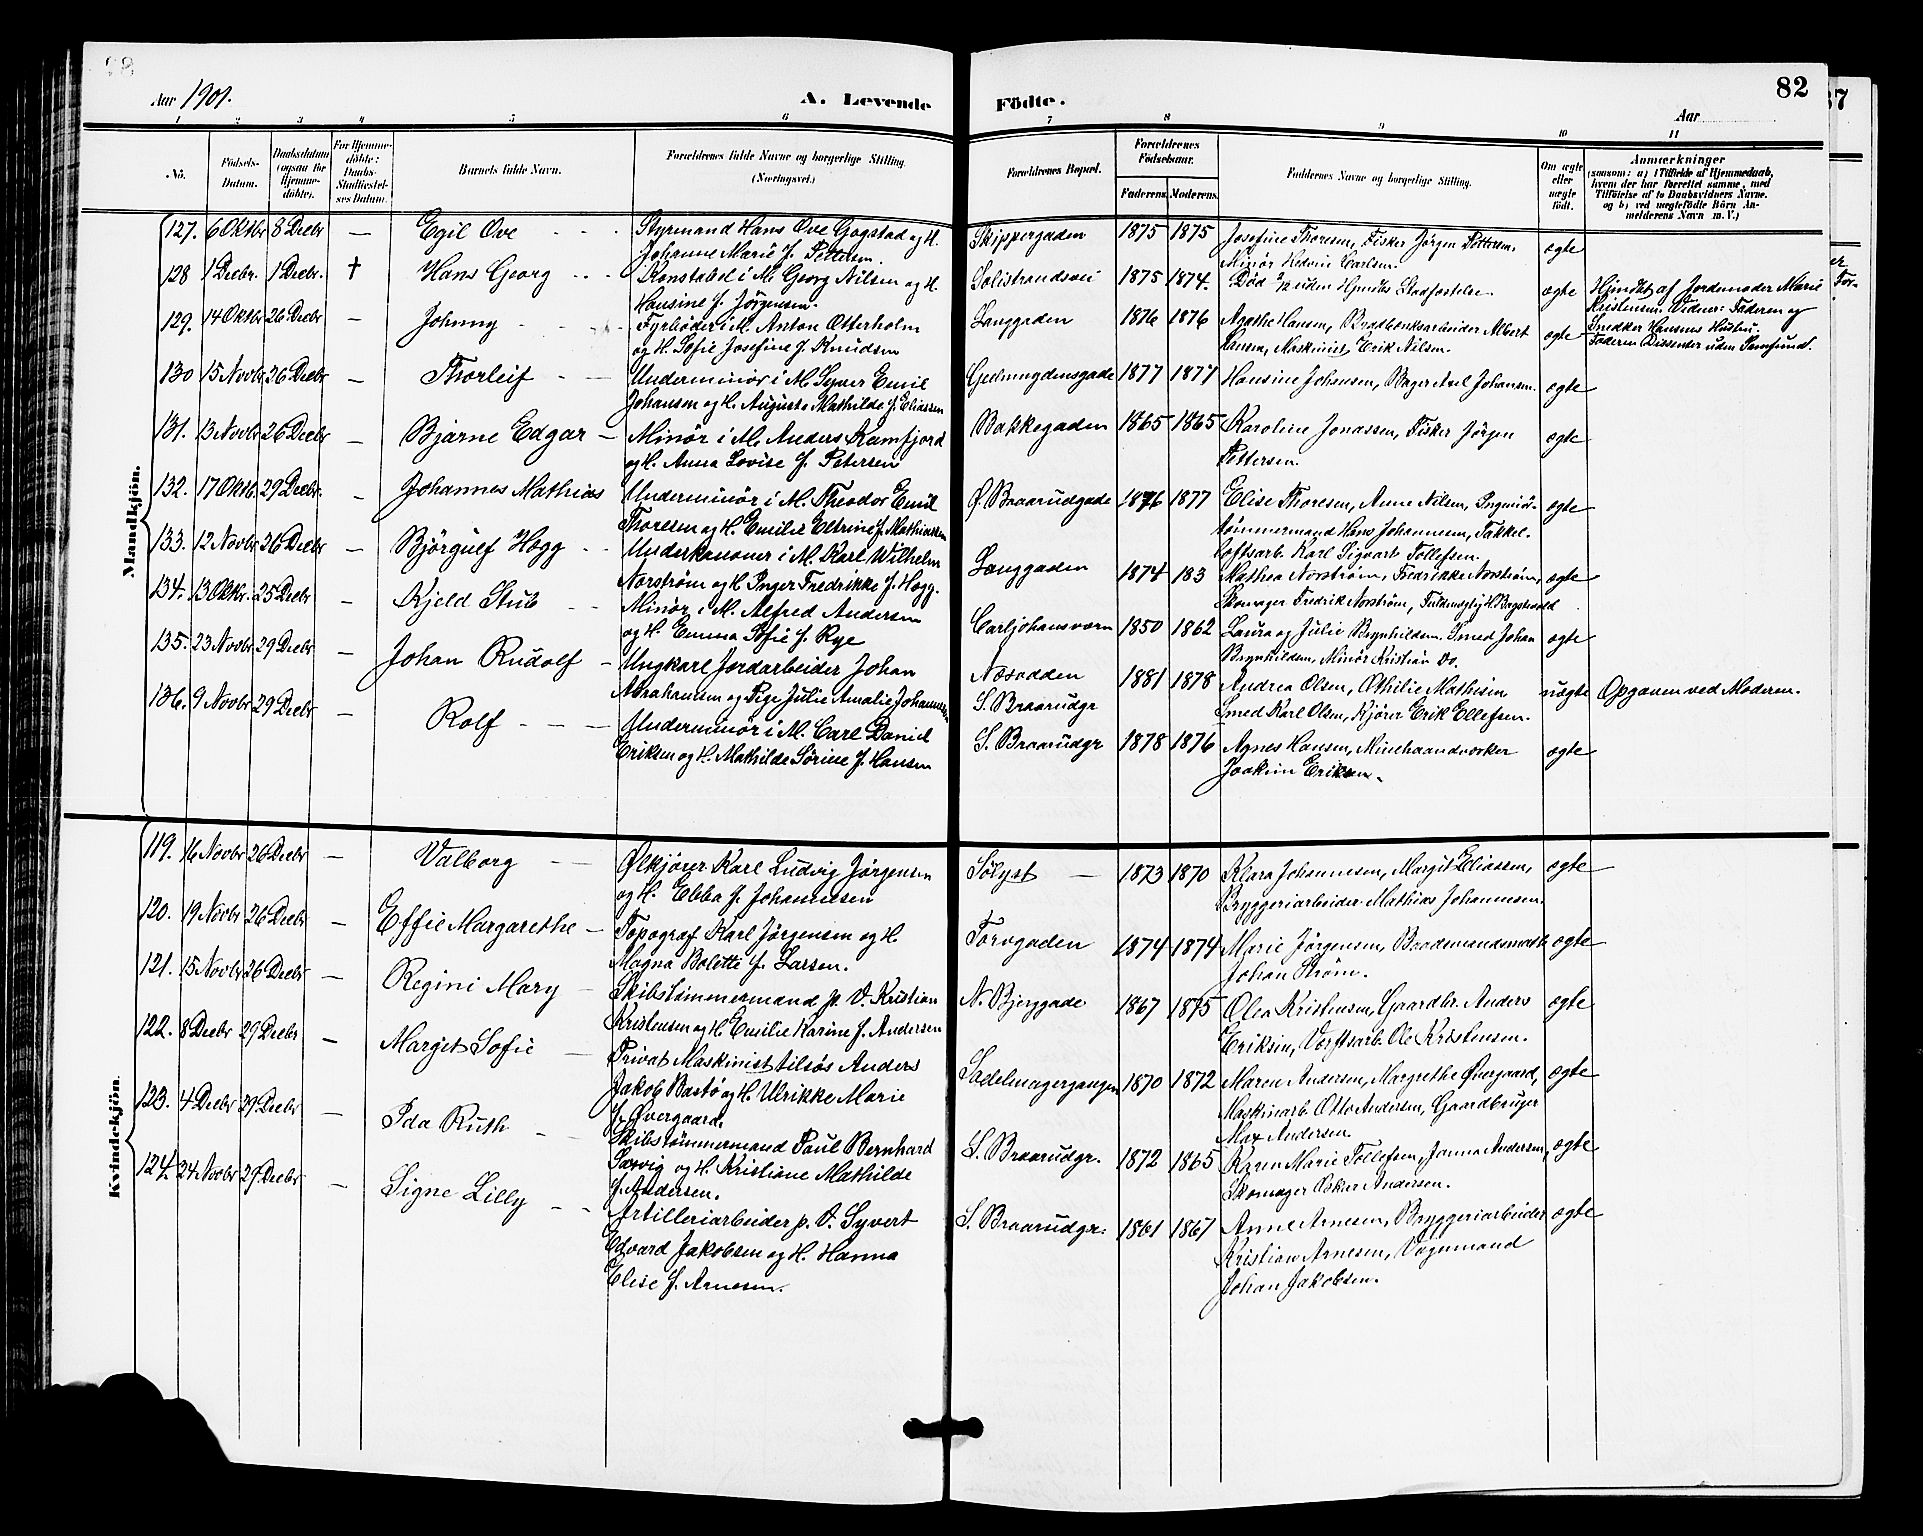 82
Aar 1901.
A. Levende Födte.
Aar
1 2 3 4 5 6 7 8 9 10 11
No.
Födsels-Datum.
Daabsdatum (ogsaa for Hjemme-döbte).
For Hjemme-döbte: Daabs-Stadfæstel-ses Datum.
Barnets fulde Navn.
Forældrenes fulde Navne og borgerlige Stilling. (Næringsvei.)
Forældrenes Bopæl.
Forældrenes Födselsaar.
Faderens. Moderens.
Faddernes Navne og borgerlige Stilling.
Om ægte eller uægte födt.
Anmærkninger
(saasom: a) i Tilfælde af Hjemmedaab,
hvem der har forrettet samme, med
Tilföielse af to Daabsvidners Navne.
og b) ved uægtefödte Börn An-
melderens Navn m. V.)
Mandkjön.
127. 6 Oktbr 8 Decbr — Egil Ove
Styrmand Hans Ove Gogstad og H.
Johanne Marie f. Pettersen.
Skippergaden 1875 1875
Josefine Thoresen, Fisker Jørgen Pettersen.
Minør Hedvin Carlsen.
ægte
128 1 Decbr. 1 Decbr. † Hans Georg
Konstabel i M. Georg Nilsen og H.
Hansine f. Jørgensen.
Solistrandsvei 1875 1874.
Død 2/12 uden Hjmdbs Stadfæstelse.
ægte
Hjmdbt af Jordemoder Marie
Kristensen. Vidner: Faderen og
Snedker Hansens Hustru.
129. 14 Oktbr 26 Decbr — Johnny
Fyrbøder i M. Anton Otterholm
og H. Sofie Josefine f. Knudsen
Langgaden 1876 1876
Agathe Hansen, Albert
Hansen, Maskinist Erik Nilsen.
ægte
Faderen Dissenter uden Samfund.
130 15 Novbr 26 Decbr — Thorleif
Underminør i M. Syver Emil
Johansen og H. Augusta Mathilde f. Eliassen
Geelmuydensgade 1877 1877
Hansine Johansen, Bager Axel Johansen.
ægte
131. 13 Novbr 26 Decbr — Bjarne Edgar
Minør i M. Anders Ramfjord
og H. Anna Lovise f. Petersen
Bakkegaden 1865 1865
Karoline Jonassen, Fisker Jörgen
Pettersen.
ægte
132. 17 Oktb. 29 Decbr. — Johannes Mathias
Underminör i M. Theodor Emil
Thoresen og H. Emilie Eltrine f. Mathiassen
Ø. Braarudgade 1876 1877
Elise Thoresen, Anne Nilsen,
tömmermand Hans Johannesen, Takkel-
loftsarb. Karl Sigvart Tollefsen.
ægte
133. 12 Novbr 26 Decbr — Björgulf Hogg
Underkanoner i M. Karl Wilhelm
Norström og H. Inger Fredrikke f. Hogg.
Langgaden 1874 183
Mathea Norström, Fredrikke Norström,
Skomager Fredrik Norström, Fuldmægtig H.
ægte
134. 13 Oktbr. 25 Decbr — Kjeld Stub
Minör i M. Alfred Andersen
og H. Emma Sofie f. Rye
Carljohansværn 1850 1862
Laura og Julie Brynhildsen. Smed Johan
Brynhildsen, Minör Kristian Do.
ægte
135. 23 Novbr 29 Decbr — Johan Rudolf
Ungkarl Jordarbeider Johan
Abrahamsen og Pige Julie Amalie Johannesen
Næsodden
S. Braarudgr
1881 1878
Andrea Olsen, Othilie Mathisen
Smed Karl Olsen, Kjörer Erik Ellefsen.
uægte
Opgaven ved Moderen.
136. 9 Novbr 29 Decbr — Rolf
Underminör i M. Carl Daniel
Eriksen og H. Mathilde Sörine f. Hansen
S. Braarudgr 1878 1876
Agnes Hansen, Minehaandværker
Joakim Eriksen.
ægte
Kvindekjön.
119. 16 Novbr 26 Decbr — Valborg
Ølkjörer Karl Ludvig Jørgensen
og H. Ebba f. Johannesen
Sölyst — 1873 1870
Klara Johannesen, Margit Eliassen,
Bryggeriarbeider Mathias Johannesen.
ægte
120. 19 Novbr 26 Decbr — Effie Margarethe
Topograf Karl Jörgensen og H
Magna Bolette f. Larsen.
Torvgaden 1874 1874
Marie Jörgensen, Baadsmandsmath
Johan Ström.
ægte
121. 15 Novbr 26 Decbr — Regini Mary
Skibstömmermand p. V. Kristian
Kristensen og H. Emilie Karine f. Andersen
N. Bjerggade 1867 1875
Olea Kristensen, Gaardbr. Anders
Eriksen, Værftsarb. Ole Kristensen.
ægte
122. 8 Decbr 29 Decbr — Margit Sofie
Privat Maskinist tilsös Anders
Jakob Bastø og H. Ulrikke Marie
f. Øvergaard.
Sadelmagergangen 1870 1872
Maren Andersen, Margrethe Øvergaard,
Maskinarb. Otto Andersen, Gaardbruger
Max Andersen.
ægte
123. 4 Decbr 29 Decbr — Ida Ruth
Skibstömmermand Paul Bernhard
Sarvig og H. Kristiane Mathilde
f. Andersen.
S. Braarudgr. 1872 1865
Karen Marie Tollefsen, Janna Andersen,
Skomager Oskar Andersen.
ægte
124. 24 Novbr 29 Decbr — Signe Lilly
Artilleriarbeider p. V. Syvert
Edvard Jakobsen og H. Hanna
Elise f. Arnesen.
S. Braarudgr. 1861 1867
Anne Arnesen, Bryggeriarbeider
Kristian Arnesen, Vognmand
Johan Jakobsen.
ægte